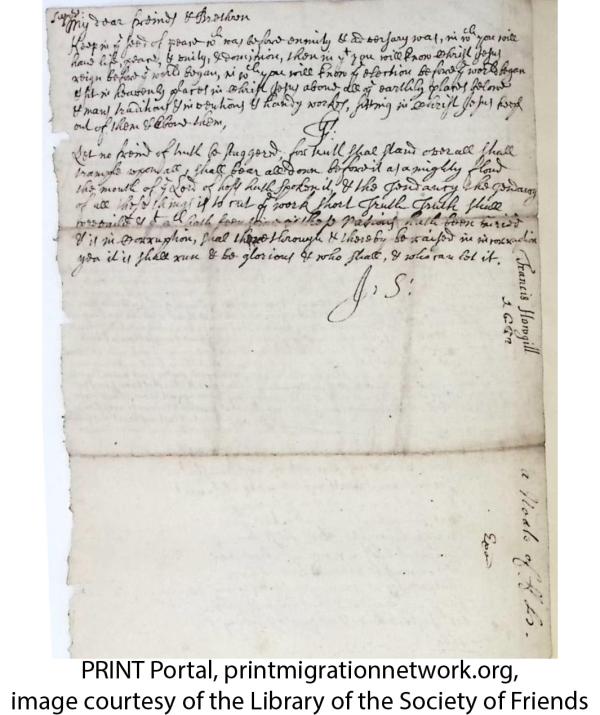 My dear freinds & Brethren
Keep in yᵉ seed of peace wᶜʰ was before enmity & adversary was, in wᶜʰ you will
have life, peace, & unity, & dominion, then in yᵗ you will know Christ Jesus
reign before yᵉ world began, in wᶜʰ you will know yᵉ election before yᵉ world began
& sit in heavenly places in Christ Jesus above all yᵉ earthly places below
& mans traditions & inventions & handy workes, sitting in Christ Jesus keep
out of them & above them,
G: F:
Let no freind of truth be staggerd. for truth shal stand over all shall
trample upon all, & shall bear all down before it as a mighty floud
the mouth of yᵉ Lord of hosts hath spoken it, & the Tendancy the Tendancy
of all these things is to cut yᵉ work short Truth Truth shall
& yᵗ all hath been in these Nations hath been
& is in Corruption, shal there through & thereby be raised in incorruption
yea it is shall run & be glorious & who shall, & who can let it.
J: S:
Francis Howgill
a
of
PRINT Portal, printmigrationnetwork.org,
image courtesy of the Library of the Society of Friends